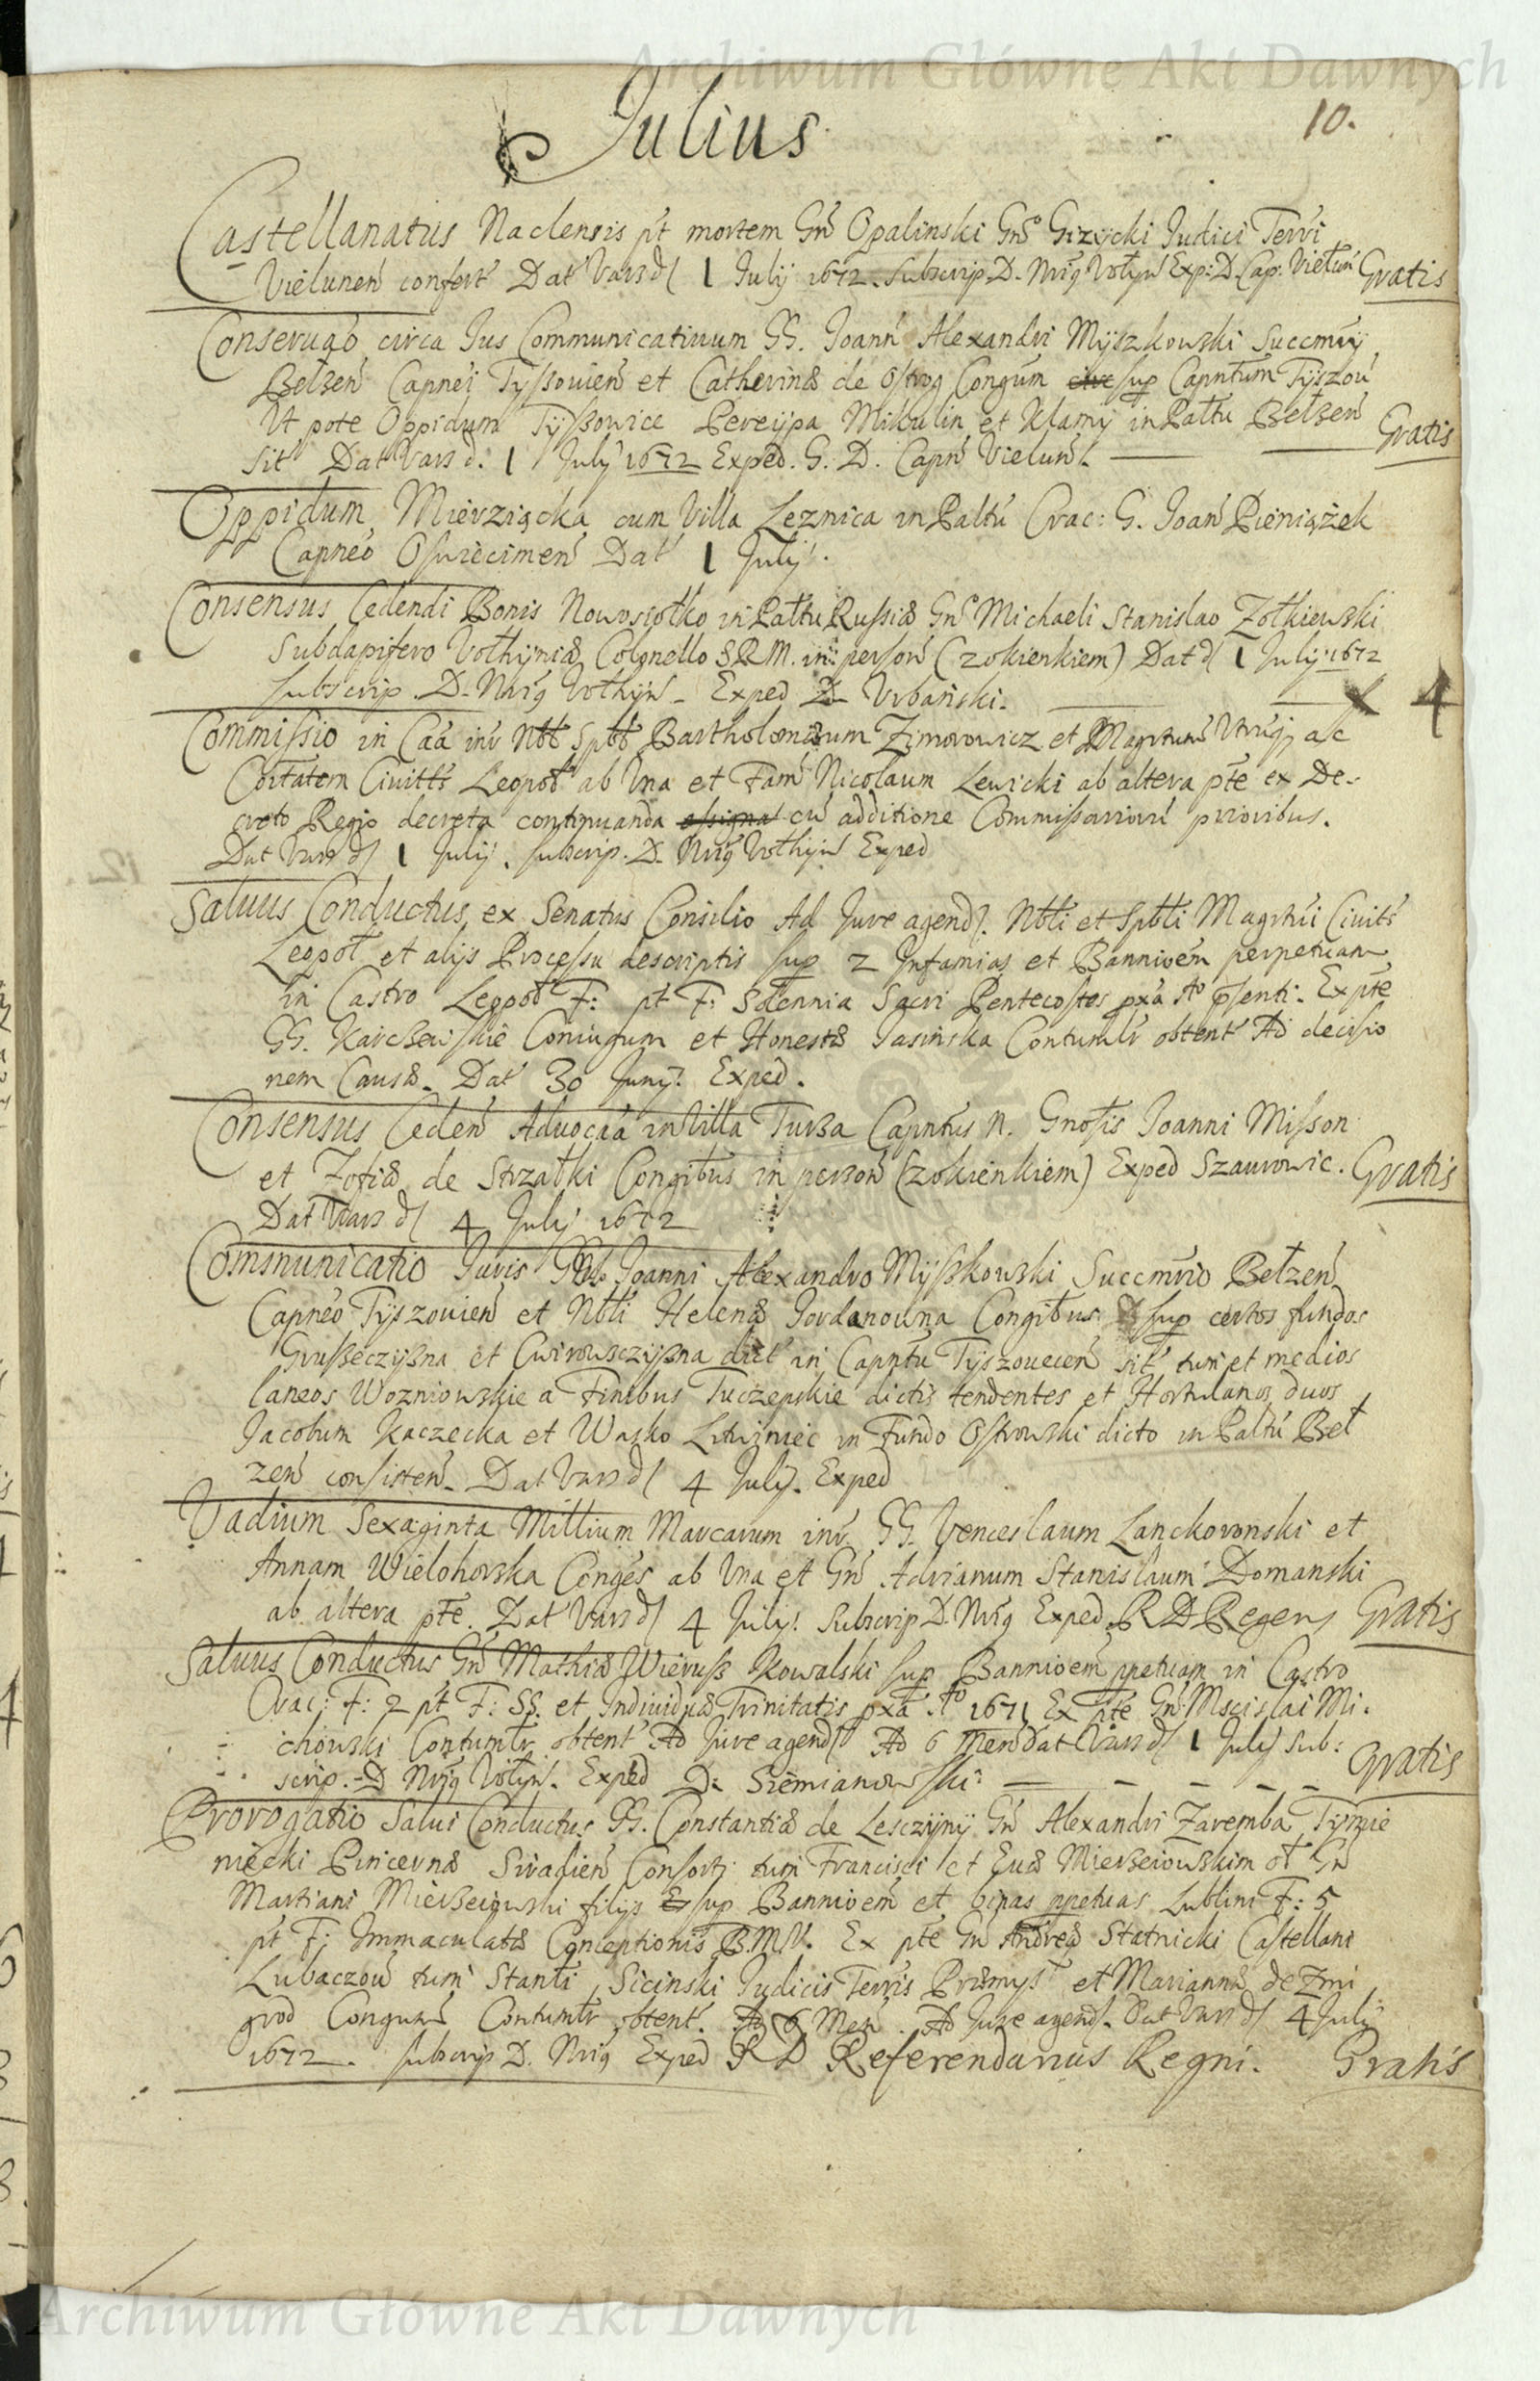 Archiwum Główne Akt Dawnych
Julius
10.
Castellanatus Naclensis pt mortem Gn Opalinski Gno Gizycki Iudici Terri
Vielunen confert Dat Vars d 1 July 1672. Subscrip. D. Nrig Volyn Exp: D. Cap: Vielun Gratis
Conseruao circa Ius Communicatiuum GG. Ioann Alexandri Myszkowski Succmrij
Belzen Capnei Tyssouien et Catherinæ de Ostrog Congum sup Capntum Tyszou
Ut pote Oppidum Tyszowice Pereypa Mikulin et Klamy in Paltu Belzen
sit Dat Vars d. 1 July 1672 Exped. G. D. Capn Vielun. Gratis
Oppidum Mierziącka cum Villa Leznica in Paltu Crac: G. Ioan Pieniążek
Capneo Osuiecimen Dat 1 July.
Consensus Cedendi Bonis Nowosiołko in Paltu Russiæ Gno Michaeli Stanislao Zołkiewski
Subdapifero Volhyniæ Colonello S.R.M. in person (z okienkiem) Dat d 1 July 1672
subscrip. D. Nrig Volhyn. Exped D. Vrbański. X 4
Commissio in Caa inr Nbl Spbl Bartholomæum Zimorowicz et Magrtum Utrüq ac
Coitatem Ciuitts Leopol ab Una et Fam Nicolaum Lewicki ab altera pte ex De-
creto Regio decreta continuanda assigna cu additione Commissarioru prioribus.
Dat Vars d 1 July. subscrip. D. Nrig Volhyn Exped
Saluus Conductus ex Senatus Consilio Ad Jure agend. Nbli et Spbli Magrtui Ciuits
Leopol et alijs Processu descriptis sup 2 Infamias et Bannioem perpetuam
in Castro Leopol F: pt F: Solennia Sacri Pentecostes pxa Ao psenti. Expte
GG. Karczewskie Coniugum et Honestæ Iasinska Contumlr obtent Ad decisio
nem Causæ. Dat 30 Junij. Exped.
Consensus Ceden Aduocaa in Villa Turza Capntus N. Gnosis Ioanni Misson
et Zofiæ de Strzałki Congibus in person (z okienkiem) Exped Szaurowic. Gratis
Dat Vars d 4 July 1672
Communicatio Iuris Ioanni Alexandro Myszkowski Succmrio Belzen
Capneo Tyszouien et Nbli Helenæ Iordanowna Congibus sup certos fundos
Gruszeczyzna et Cwirowszczyzna dict in Capntu Tyszouecen sit tum et medios
laneos Wozniowskie a Finibus Tuczepskie dictis tendentes et Hortulanos duos
Jacobum Kaczecka et Wasko Litwiniec in Fundo Ostrowski dicto in Paltu Bel
zen consisten. Dat Vars d 4 July. Exped
Vadium Sexaginta Millium Marcarum inr GG. Venceslaum Lanckoronski et
Annam Wielohorska Conges ab Una et Gn Adrianum Stanislaum Domanski
ab altera pte. Dat Vars d 4 July. Subscrip D. Nrig Exped R D Regens Gratis
Saluus Conductus Gn Mathiæ Wierusz Kowalski sup Bannioem ppetuam in Castro
Crac: F: 2 pt F: SS. et Indiuiduæ Trinitatis pxa Ao 1671 Ex Pte Gn Mscislai Mi-
chowski Contumlr obtent Ad Jure agend Ad 6 Men Dat Vars d 1 July Sub:
scrip. D Nrig Volyn. Exped D. Siemianowski: Gratis
Prorogatio Salui Conductus GG. Constantiæ de Lesczyny Gn Alexandri Zaremba Tymie
niecki Pincernæ Siradien Consorti tum Francisci et Euæ Mierzeiowskim ol Gn
Martiani Mierzeiowski filijs sup Bannioem et binas ppetuas Lublini F: 5
pt F: Immaculatæ Conceptionis B.M.V. Ex pte Gn Andreæ Statnicki Castellani
Lubaczou tum Stanli Sicinski Iudicis Terris Præmys et Mariannæ de Zmi
grod Congum Contumlr obtent. Ad 6 Men. Ad Jure agend. Dat Vars d 4 July
1672. subscrip D. Nrig Exped R D Referendarius Regni. Gratis
Archiwum Główne Akt Dawnych